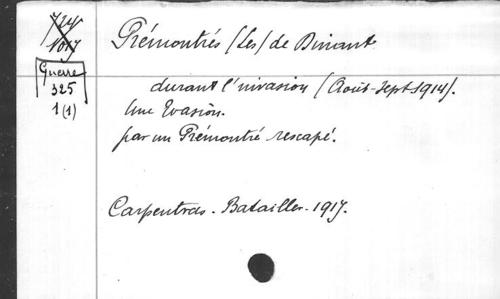 Guerre
325
1(1)
Prémontrés (Les) de Dinant
durant l'invasion (Août-Sept 1914).
Une Evasion.
par un Prémontré rescapé.
Carpentras - Batailler - 1917.